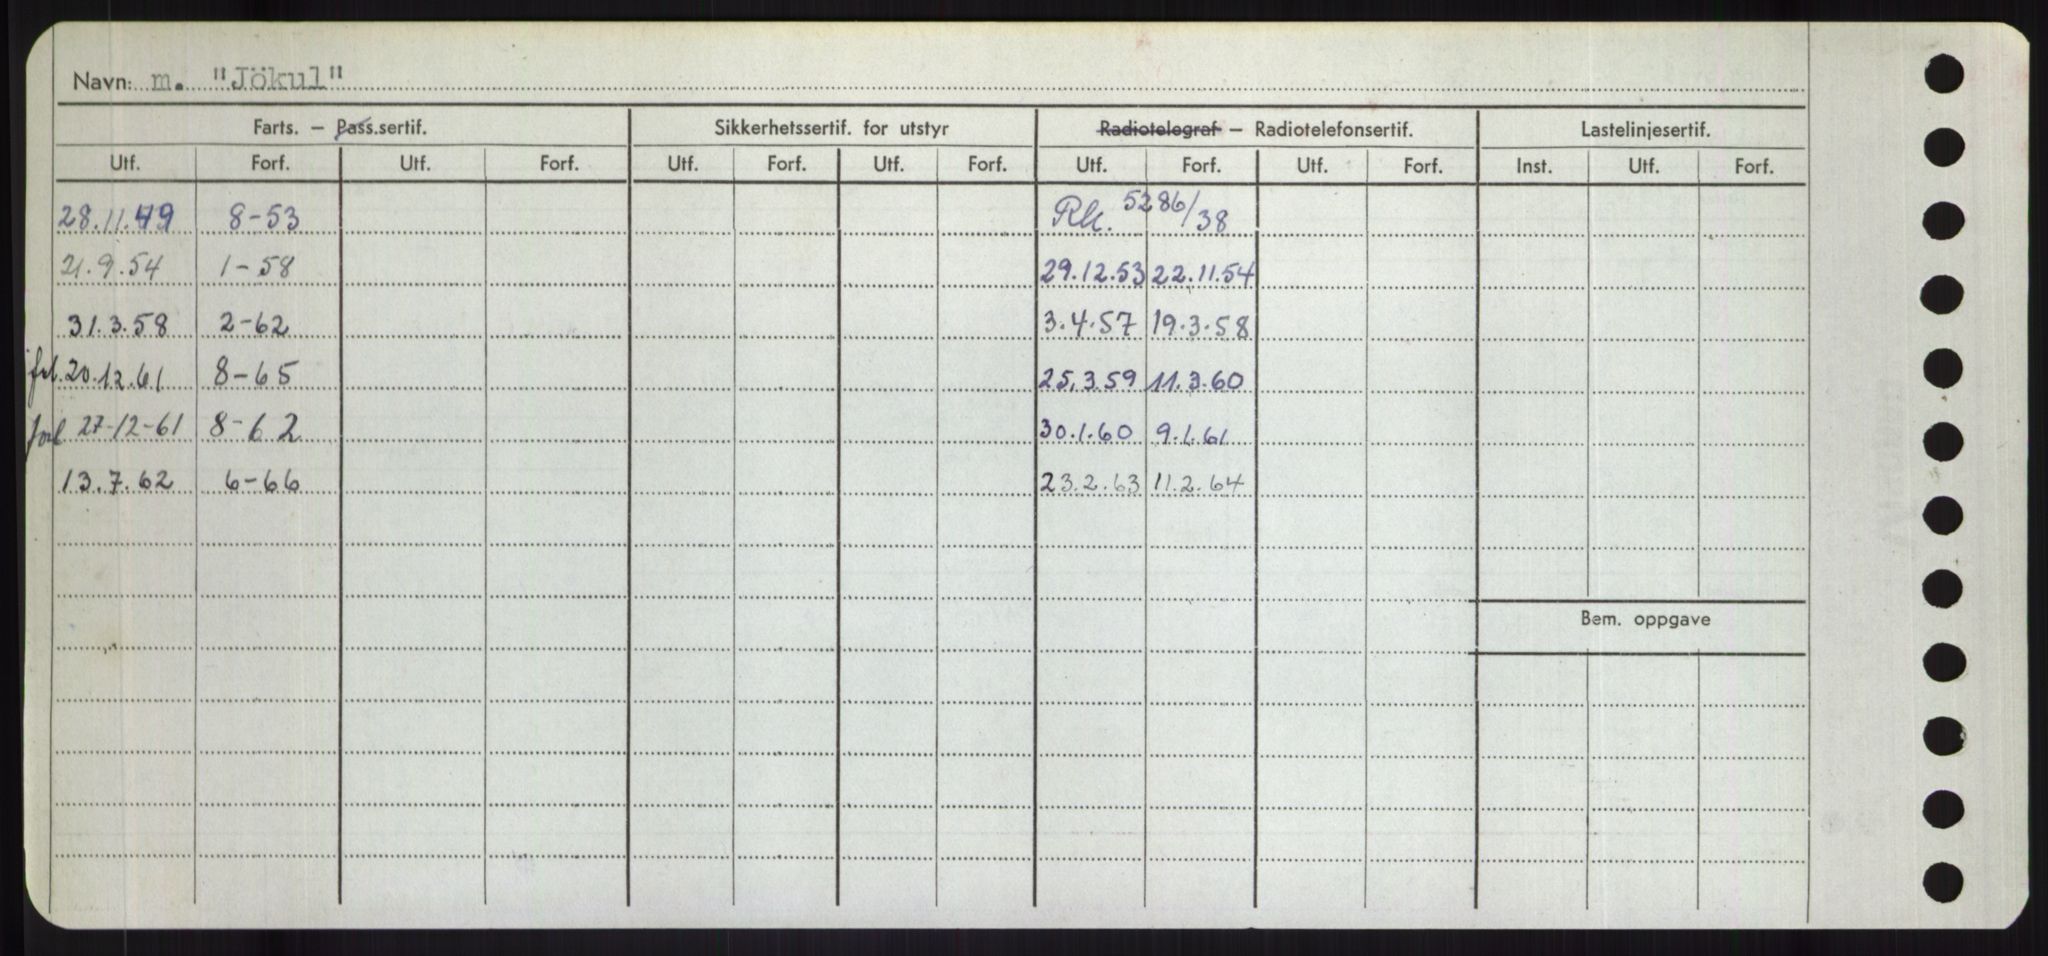 Navn: m. "Jökul"
Farts. – Pass.sertif. Sikkerhetssertif. for utstyr Radiotelegraf – Radiotelefonsertif. Lastelinjesertif.
Utf. Forf. Utf. Forf. Utf. Forf. Utf. Forf. Utf. Forf. Utf. Forf. Inst. Utf. Forf.
28.11.49 8-53 Rk. 5286/38
21.9.54 1-58 29.12.53 22.11.54
31.3.58 2-62 3.4.57 19.3.58
20.12.61 8-65 25.3.59 11.3.60
forl 27-12-61 8-62 30.1.60 9.1.61
13.7.62 6-66 23.2.63 11.2.64
Bem. oppgave